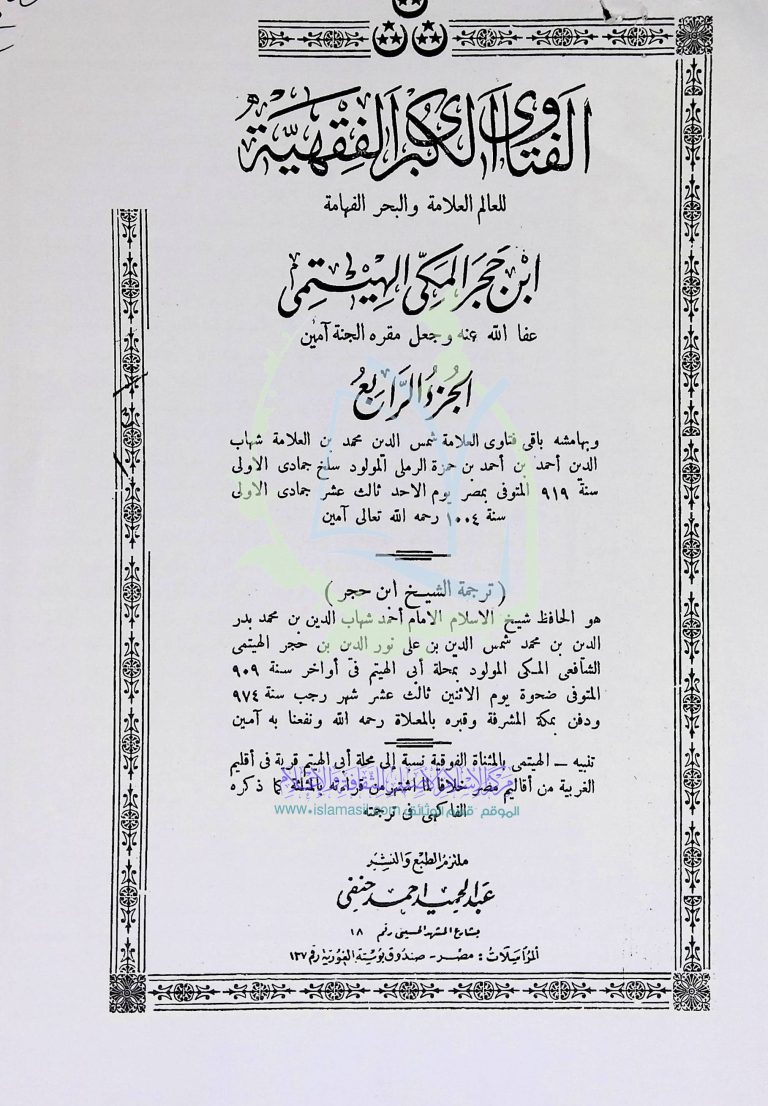 الفتاوى الكبرى الفقهية
للعالم العلامة والبحر الفهامة
ابن حجر المكي الهيتمي
عفا الله عنه وجعل مقره الجنة آمين
الجزء الرابع
وبهامشه باقى فتاوى العلامة شمس الدين محمد بن العلامة شهاب
الدين أحمد بن أحمد بن حمزة الرملى المولود سلخ جمادى الاولى
سنة ٩١٩ المتوفى بمصر يوم الاحد ثالث عشر جمادى الاولى
سنة ١٠٠٤ رحمه الله تعالى آمين
( ترجمة الشيخ ابن حجر )
هو الحافظ شيخ الاسلام الامام أحمد شهاب الدين بن محمد بدر
الدين بن محمد شمس الدين بن على نور الدين بن حجر الهيتمى
الشافعى المكى المولود بمحلة أبى الهيتم فى أواخر سنة ٩٠٩
المتوفى ضحوة يوم الاثنين ثالث عشر شهر رجب سنة ٩٧٤
ودفن بمكة المشرفة وقبره بالمعلاة رحمه الله ونفعنا به آمين
تنبيه ــ الهيتمى بالمثناة الفوقية نسبة إلى محلة أبى الهيتم قرية فى أقليم
الغربية من أقاليم مصر خلافا لما اشتهر من قراءته بالمثلثة كما ذكره
الفاكهى فى ترجمته
الموقع قسم الوثائق www.islamasil.com
ملتزم الطبع والنشر
عبد الحميد احمد حنفى
بشارع المشهد الحسينى رقم ١٨
المراسلات : مصر - صندوق بوستة الغورية رقم ١٣٧